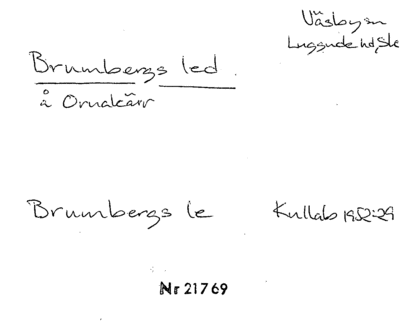 Väsby sn
Luggude hd, Sk
Brumbergs led
å Ornakärr
Brumbergs le
Kullab 1952:29
Nr 21769